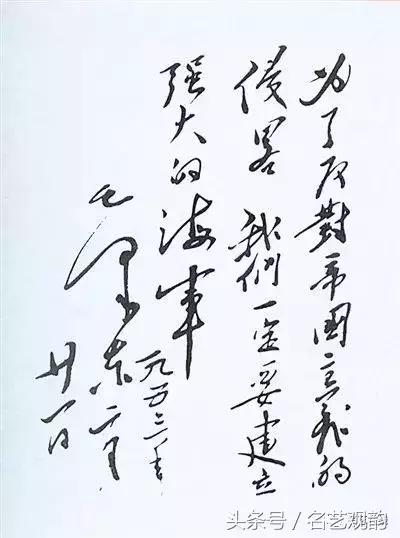 为了反對帝國主義的
侵畧 我們一定要建立
強大的海軍
毛澤东
一九五三年
二月
廿一日
头条号/名艺观韵